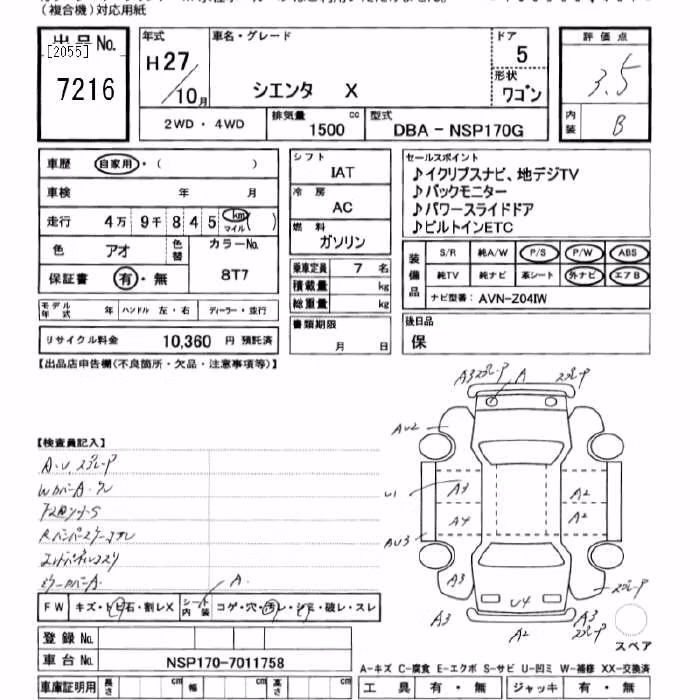 (複合機)対応用紙
出品No.
[2055]
7216
年式
H27/10月
車名・グレード
シエンタ X
ドア
5
形状
ワゴン
評価点
3.5
内装
B
2WD・4WD
排気量
1500 cc
型式
DBA - NSP170G
車歴 自家用・( )
車検 年 月
走行 4万 9千 8 4 5 km マイル ( )
色 アオ 色替 カラーNo. 8T7
保証書 有・無
モデル年式 年 ハンドル 左・右 ディーラー・並行
リサイクル料金 10,360 円 預託済
シフト
IAT
冷房
AC
燃料
ガソリン
乗車定員 7 名
積載量 kg
総重量 kg
書類期限
月 日
セールスポイント
♪イクリプスナビ、地デジTV
♪バックモニター
♪パワースライドドア
♪ビルトインETC
装備品
S/R 純A/W P/S P/W ABS
純TV 純ナビ 革シート 外ナビ エアB
ナビ型番: AVN-Z04IW
後日品
保
【出品店申告欄(不良箇所・欠品・注意事項等)】
【検査員記入】
A・U、スプレーP
FW キズ・トビ石・割レX シート内装 コゲ・穴・汚レ・シミ・破レ・スレ
A.
A3 スプレーP A スプレーP
AU2
U1 A3 A2
A4 A2
AU3
A3 スプレーP
U4
A3 A2 A3 スプレーP
スペア
登録No.
車台No. NSP170-7011758
A-キズ C-腐食 E-エクボ S-サビ U-凹ミ W-補修 XX-交換済
車庫証明用 長さ cm 幅 cm 高さ cm
工具 有・無 ジャッキ 有・無